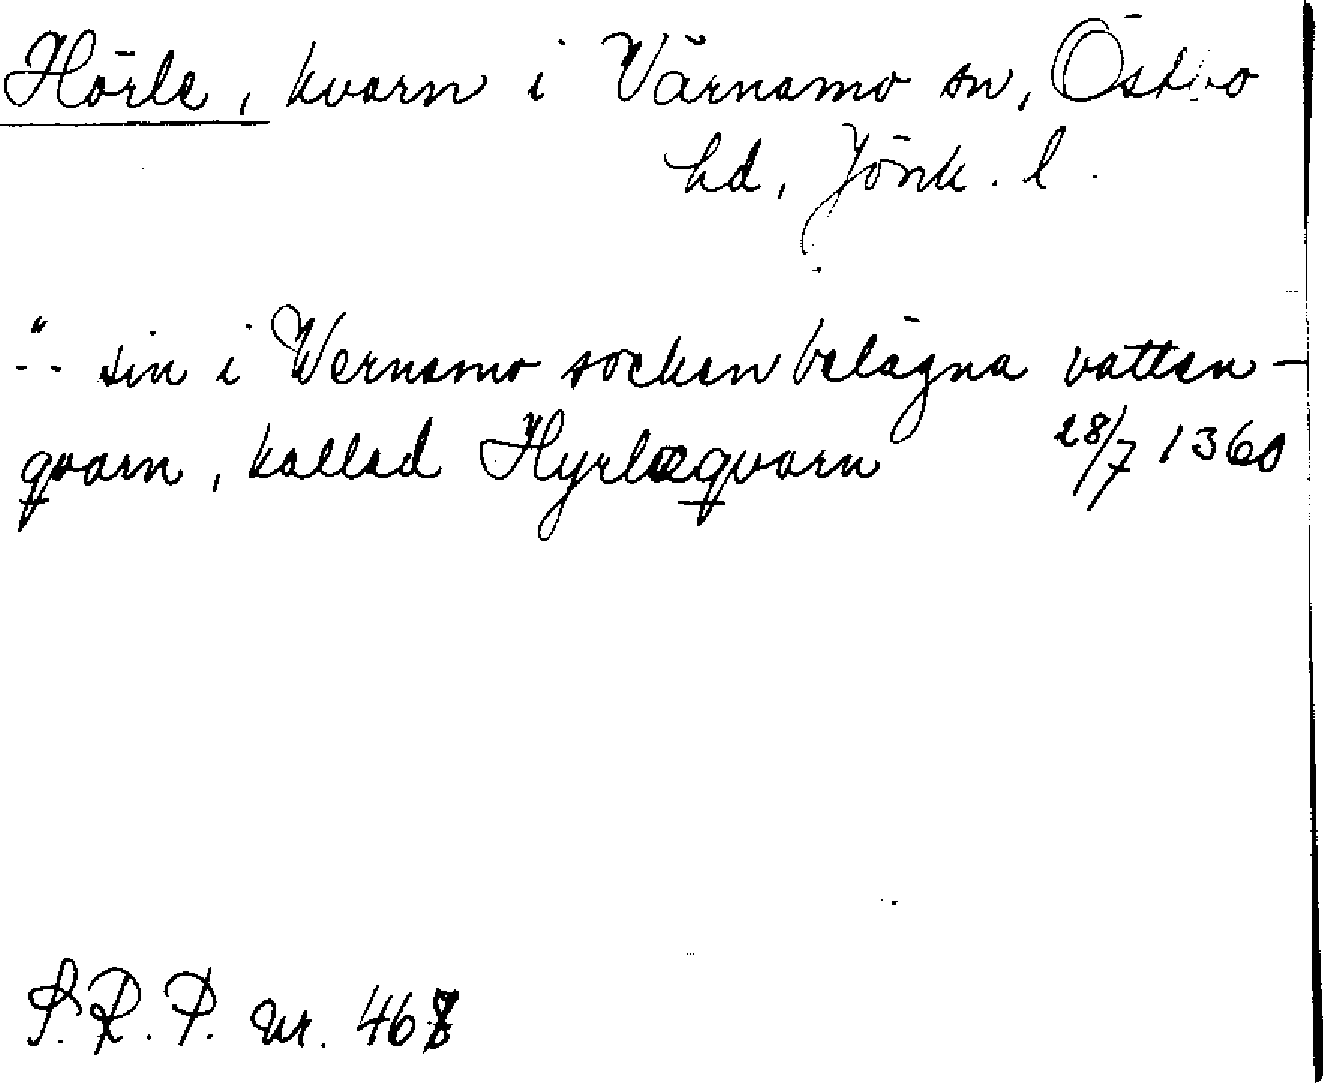 Hörle, kvarn i Värnamo sn, Östbo
hd, Jönk. l.
".. sin i Wernamo socken belägna vatten-
qvarn, kallad Hyrlæqvarn 28/7 1360
S.R.P. nr. 468